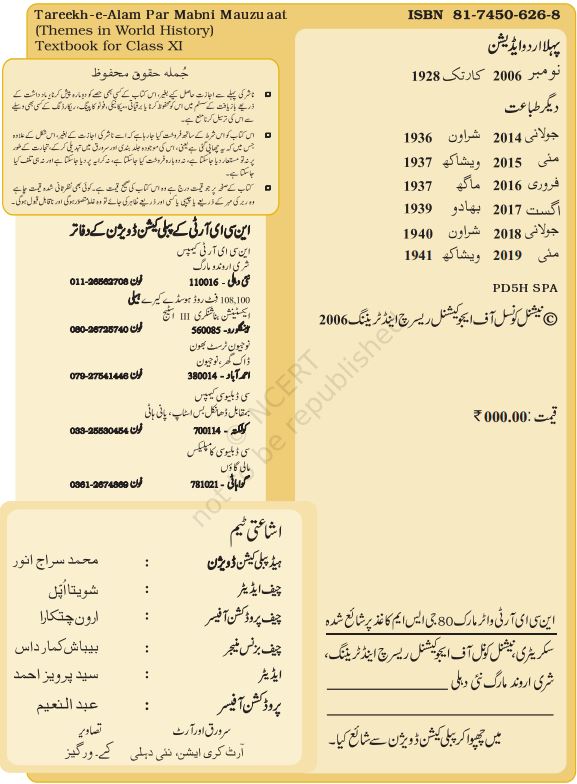 Tareekh-e-Alam Par Mabni Mauzuaat
(Themes in World History)
Textbook for Class XI
ISBN 81-7450-626-8
پہلا اردو ایڈیشن
نومبر 2006 کارتک 1928
دیگر طباعت
جولائی 2014 شراون 1936
مئی 2015 ویشاکھ 1937
فروری 2016 ماگھ 1937
اگست 2017 بھادو 1939
جولائی 2018 شراون 1940
مئی 2019 ویشاکھ 1941
PD5H SPA
© نیشنل کونسل آف ایجوکیشنل ریسرچ اینڈ ٹریننگ 2006
قیمت : ₹ 000.00
جُملہ حقوق محفوظ
ناشر کی پہلے سے اجازت حاصل کیے بغیر، اس کتاب کے کسی بھی حصّے کو دوبارہ پیش کرنا، یادداشت کے
ذریعے بازیافت کے سسٹم میں اس کو محفوظ کرنا یا برقیاتی، میکانیکی، فوٹو کاپیئنگ، ریکارڈنگ کے کسی بھی وسیلے
سے اس کی ترسیل کرنا منع ہے۔
اس کتاب کو اس شرط کے ساتھ فروخت کیا جا رہا ہے کہ اسے ناشر کی اجازت کے بغیر، اس شکل کے علاوہ
جس میں کہ یہ چھاپی گئی ہے یعنی، اس کی موجودہ جلد بندی اور سرورق میں تبدیلی کر کے، تجارت کے طور
پر نہ تو مستعار دیا جا سکتا ہے، نہ دوبارہ فروخت کیا جا سکتا ہے، نہ کرایہ پر دیا جا سکتا ہے اور نہ ہی تلف کیا
جا سکتا ہے۔
کتاب کے صفحہ پر جو قیمت درج ہے وہ اس کتاب کی صحیح قیمت ہے۔ کوئی بھی نظر ثانی شدہ قیمت چاہے
وہ ربر کی مہر کے ذریعے یا چیپی یا کسی اور ذریعے ظاہر کی جائے تو وہ غلط متصوّر ہوگی اور ناقابل قبول ہوگی۔
این سی ای آر ٹی کے پبلی کیشن ڈویژن کے دفاتر
این سی ای آر ٹی کیمپس
شری اروندو مارگ
نئی دہلی - 110016 فون 011-26562708
108,100 فٹ روڈ ہوسڈے کیرے ہیلی
ایکسٹینشن بناشنکری III اسٹیج
بینگلورو - 560085 فون 080-26725740
نوجیون ٹرسٹ بھون
ڈاک گھر، نوجیون
احمد آباد - 380014 فون 079-27541446
سی ڈبلیو سی کیمپس
بمقابل ڈھانکل بس اسٹاپ، پانی ہاٹی
کولکتہ - 700114 فون 033-25530454
سی ڈبلیو سی کامپلیکس
مالی گاؤں
گواہاٹی - 781021 فون 0361-2674869
اشاعتی ٹیم
ہیڈ پبلی کیشن ڈویژن : محمد سراج انور
چیف ایڈیٹر : شویتا اُپّل
چیف پروڈکشن آفیسر : ارون چتکارا
چیف بزنس منیجر : بیباش کمار داس
ایڈیٹر : سید پرویز احمد
پروڈکشن آفیسر : عبد النعیم
سرورق اور آرٹ تصاویر
آرٹ کری ایشن، نئی دہلی کے۔ ورگیز
این سی ای آر ٹی واٹر مارک 80 جی ایس ایم کاغذ پر شائع شدہ
سکریٹری، نیشنل کونسل آف ایجوکیشنل ریسرچ اینڈ ٹریننگ،
شری اروند مارگ نئی دہلی
میں چھپوا کر پبلی کیشن ڈویژن سے شائع کیا۔
© NCERT
not to be republished